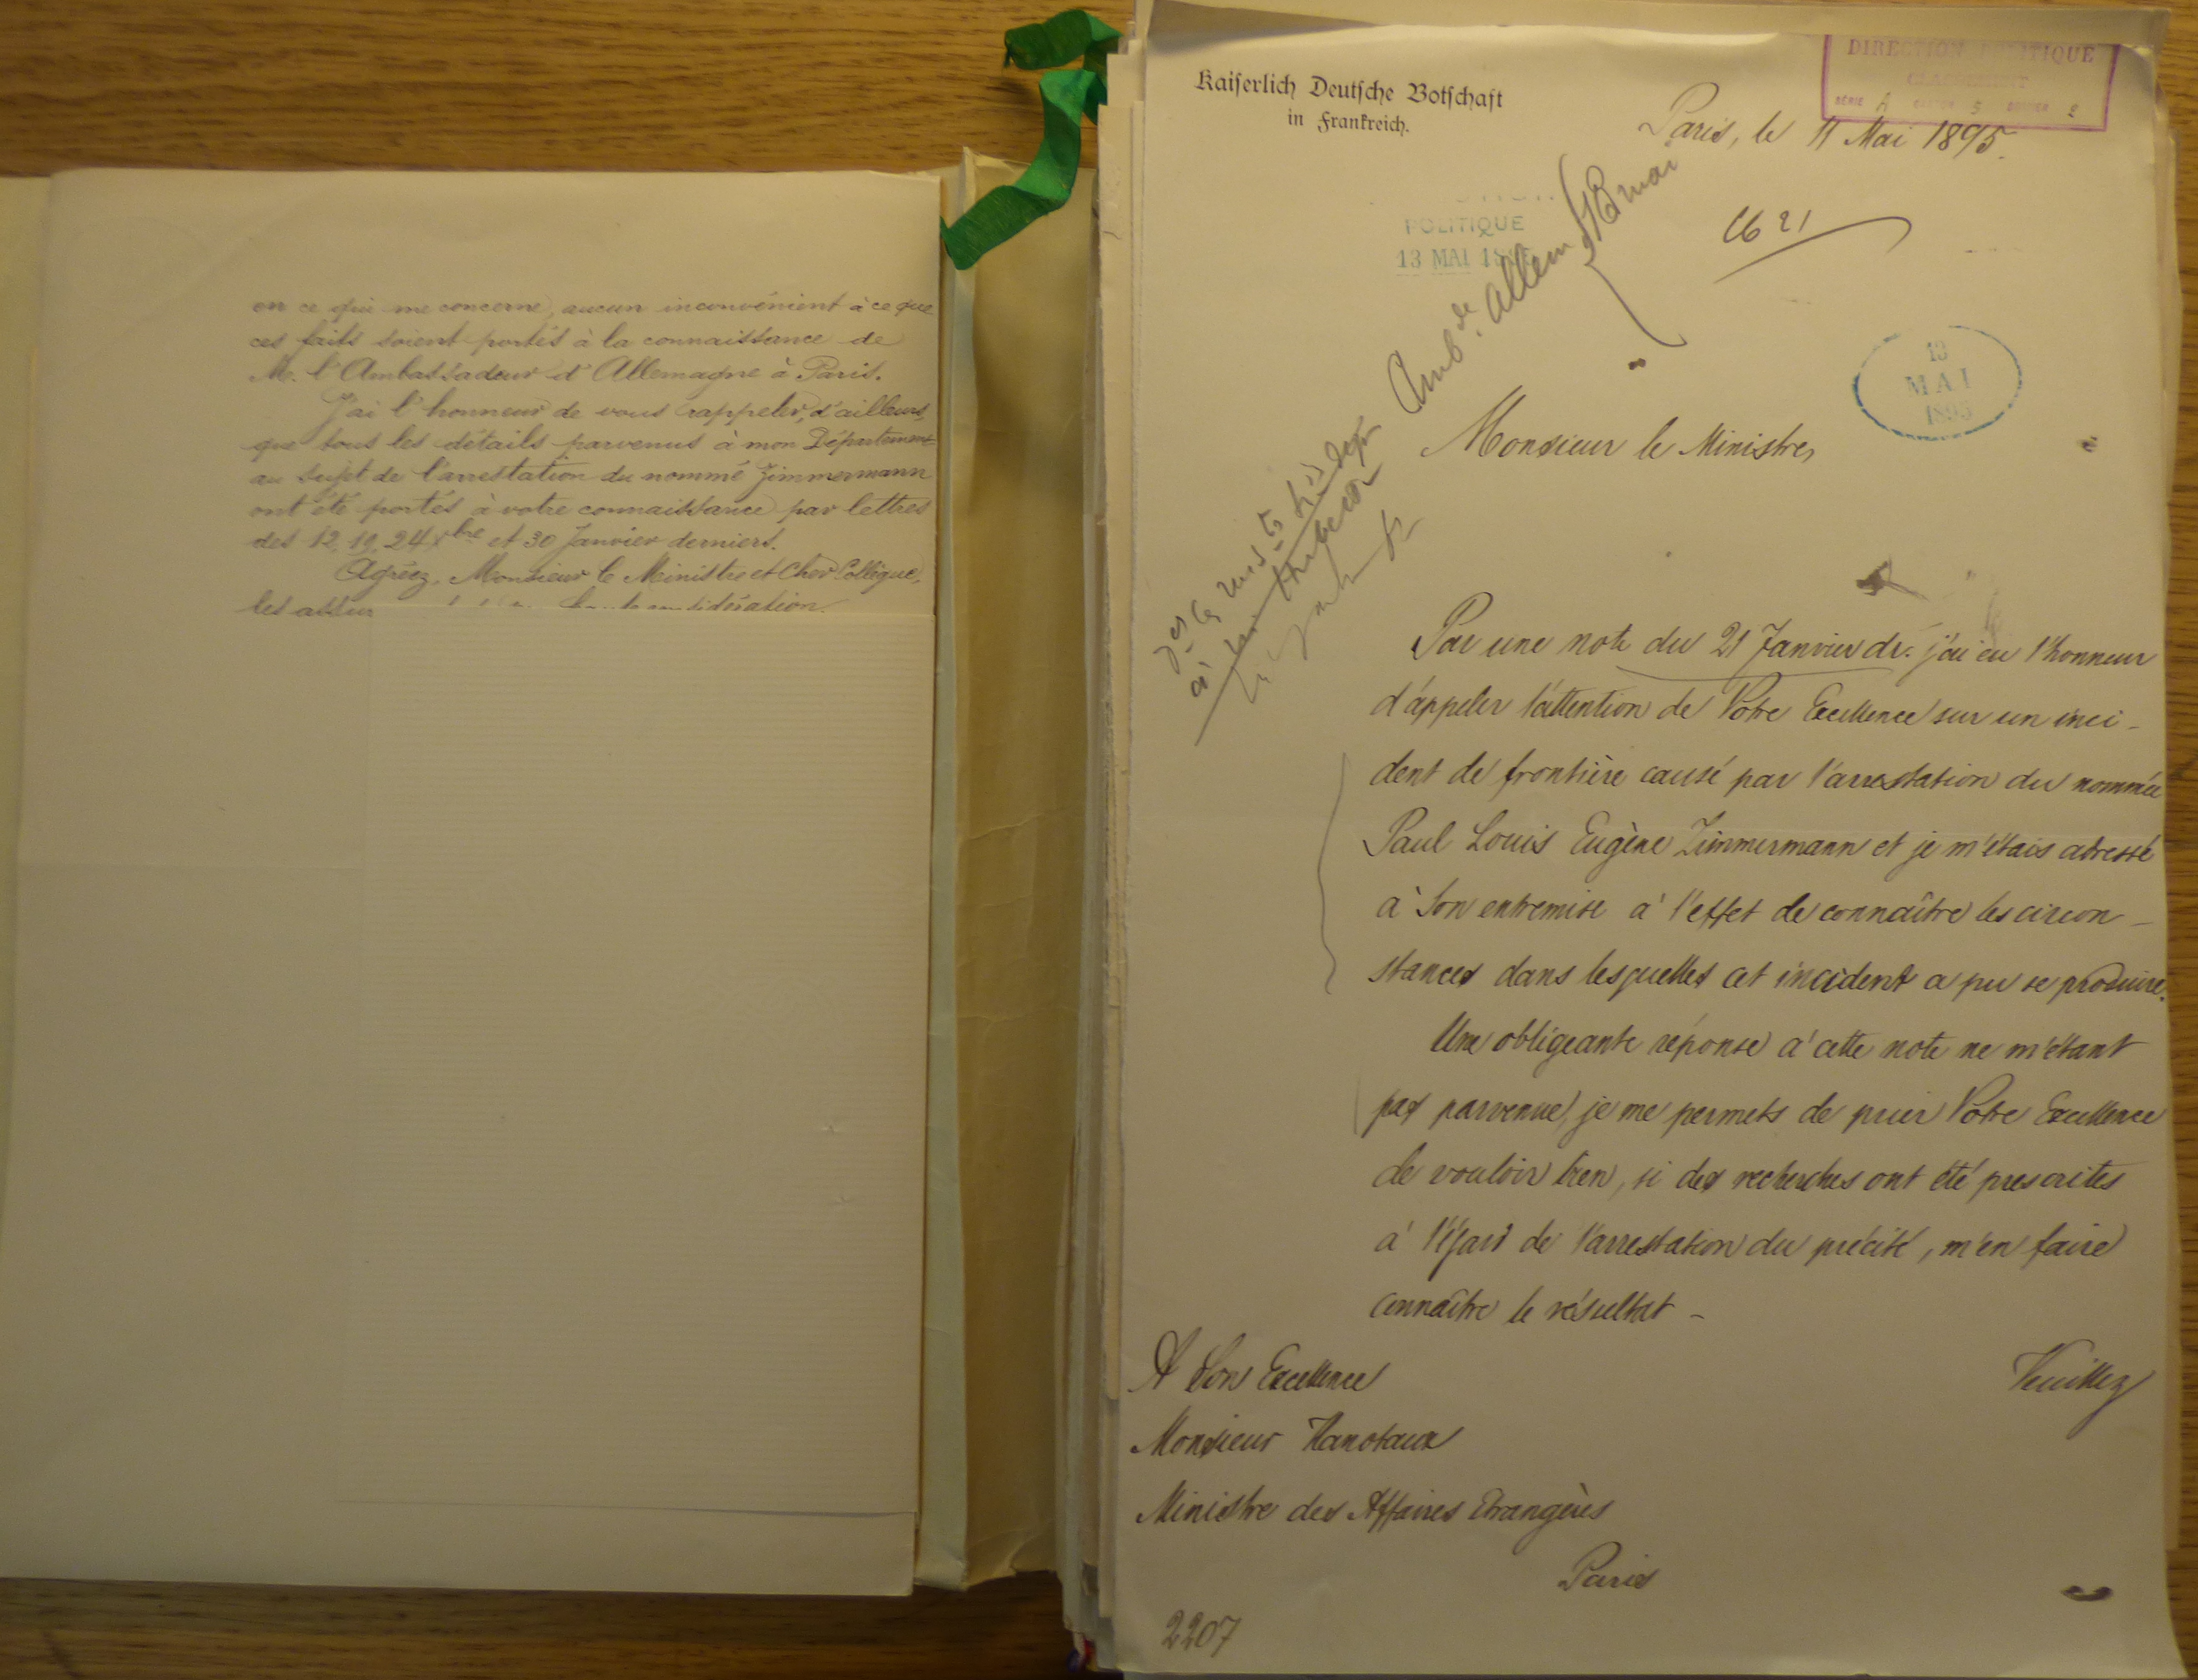 en ce qui me concerne, aucun inconvénient à ce que
ces faits soient portés à la connaissance de
M. l'Ambassadeur d'Allemagne à Paris.
J'ai l'honneur de vous rappeler, d'ailleurs,
que tous les détails parvenus à mon Département
au sujet de l'arrestation du nommé Zimmermann
ont été portés à votre connaissance par lettres
des 12, 19, 24 Xbre et 30 Janvier derniers.
Agréez, Monsieur le Ministre et Cher Collègue,
les assur considération.
Kaiserlich Deutsche Botschaft
in Frankreich.
DIRECTION POLITIQUE
SÉRIE A CARTON 5 DOSSIER 2
Paris, le 11 Mai 1895.
POLITIQUE
13 MAI 18
Amb. de Allem. 18 mai
13
MAI
1895
Monsieur le Ministre,
Par une note du 21 Janvier dr. j'ai eu l'honneur
d'áppeler l'áttention de Votre Excellence sur un inci-
dent de frontière causé par l'arrestation du nommée
Paul Louis Eugène Zimmermann et je m'étais adressé
à Son entremise a' l'effet de connaître les circon-
stances dans lesquelles cet incident a pu se produire.
Une obligeante réponse a' cette note ne m'étant
pas parvenue, je me permets de prier Votre Excellence
de vouloir bien, si des recherches ont été prescrites
a' l'égard de l'arrestation du précité, m'en faire
connaître le résultat -
Veuillez
A Son Excellence
Monsieur Hanotaux
Ministre des Affaires Etrangères
Paris
2207